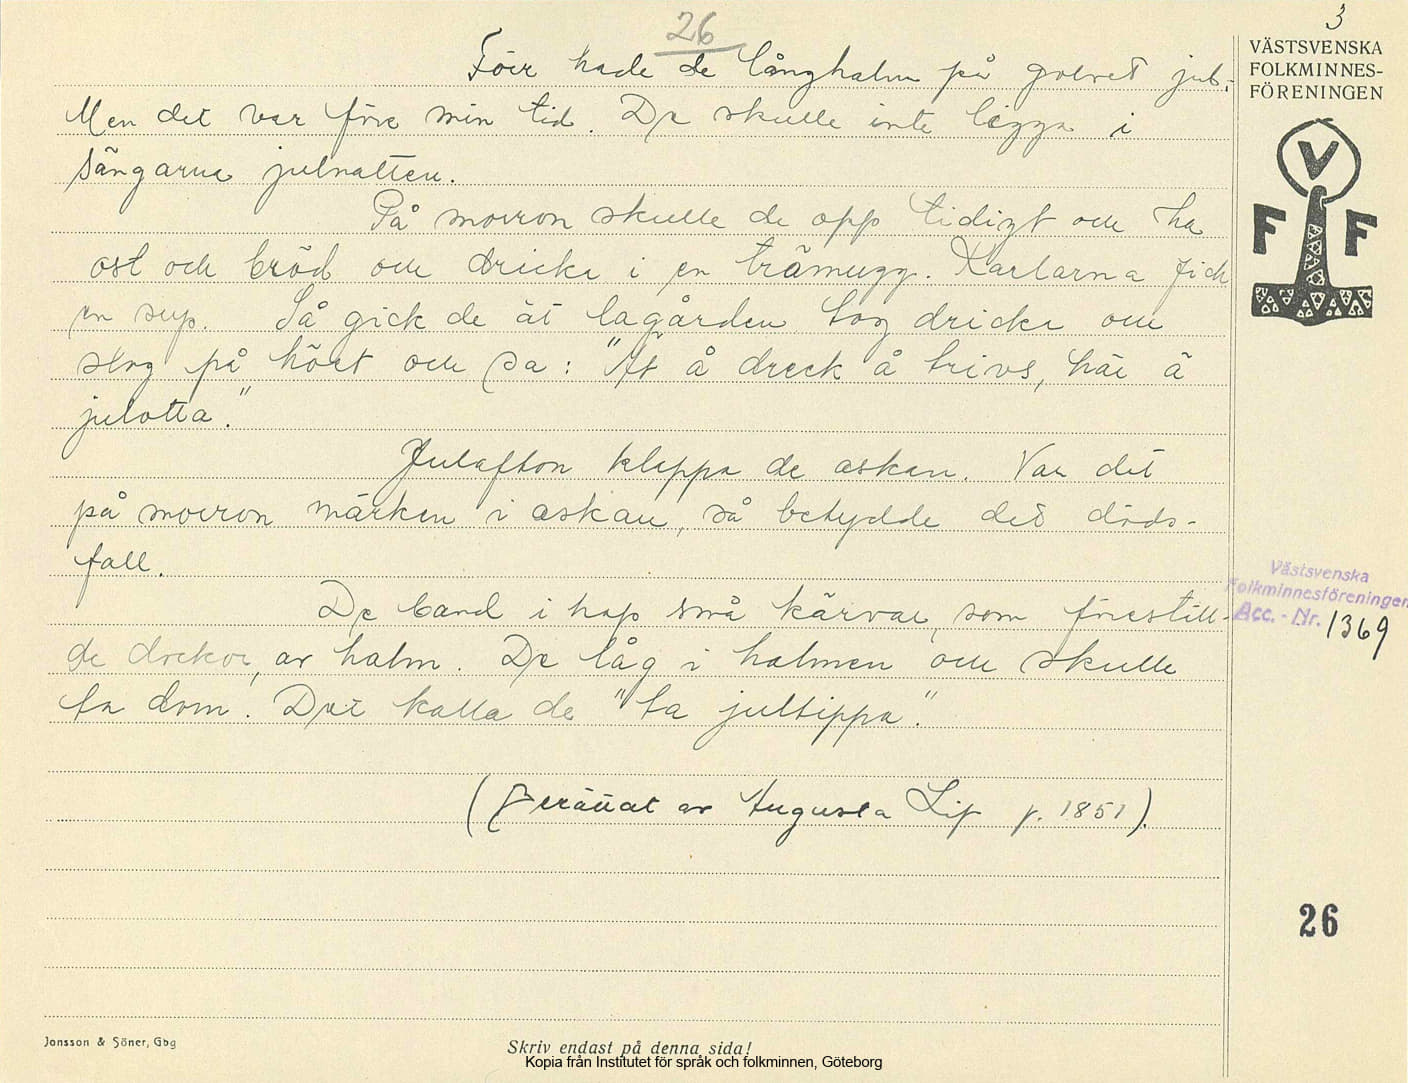 3
26
VÄSTSVENSKA
FOLKMINNES-
FÖRENINGEN
V
F F
Förr hade de långhalm på golvet jul.
Men det var före min tid. De skulle inte ligga i
sängarna julnatten.
På morron skulle de opp tidigt och ha
ost och bröd och dricka i en trämugg. Karlarna fick
en sup. Så gick de åt lagården tog dricka och
slog på höet och sa: "Ät å dreck å trivs, här ä
julotta."
Julafton klappa de askan. Var det
på morron märken i askan, så betydde det döds-
fall.
De band i hop små kärvar, som förestill-
de dockor, av halm. De låg i halmen och skulle
ta dom. Det kalla de "ta jultippa".
(Berättat av Augusta f. 1851).
Västsvenska
Folkminnesföreningen
Acc. - Nr. 1369
26
Jonsson & Söner, Gbg
Skriv endast på denna sida!
Kopia från Institutet för språk och folkminnen, Göteborg